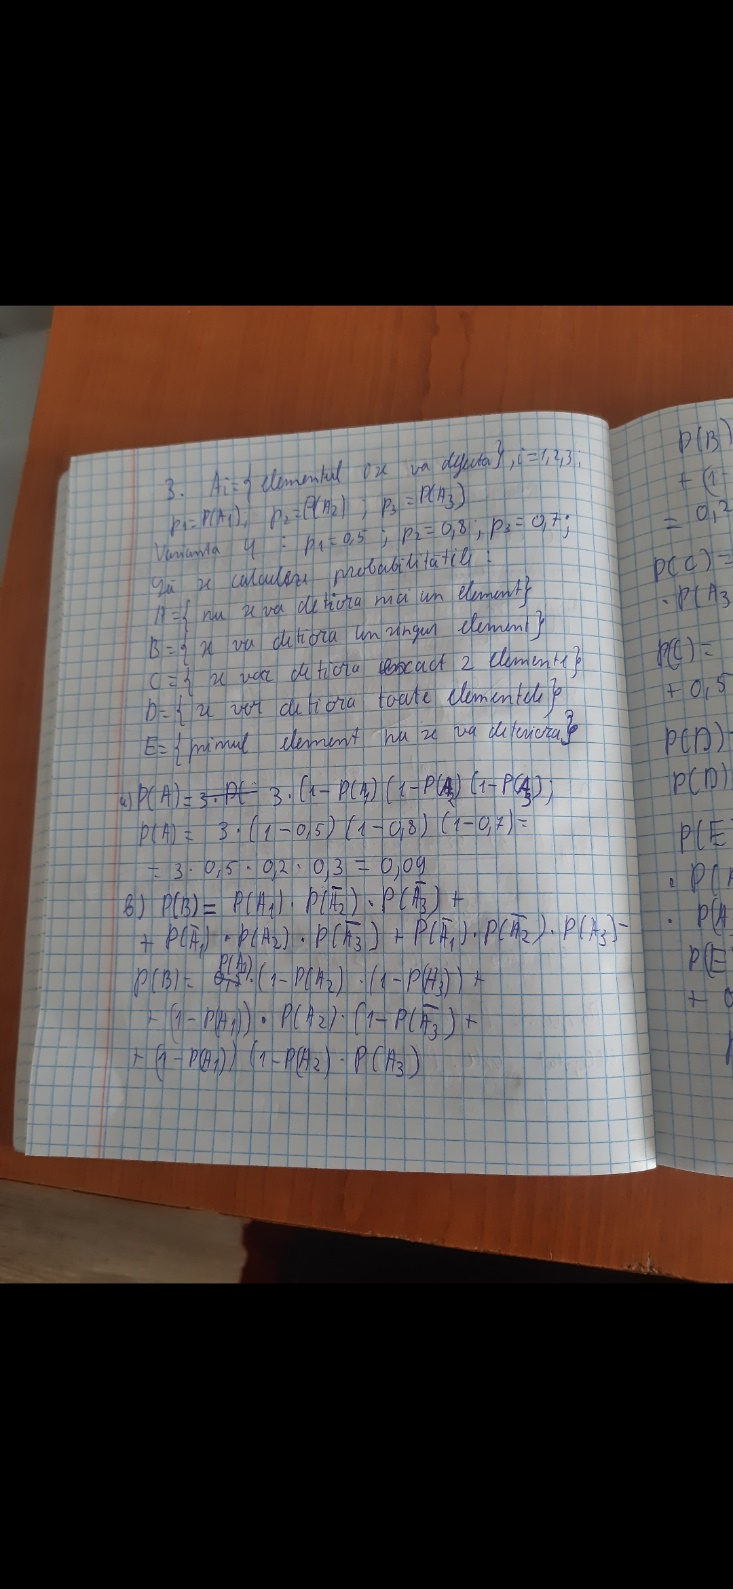 3. Ai={elementul i se va defecta}, i=1,2,3;
p₁=P(A₁), p₂=P(A₂) ; p₃=P(A₃)
Varianta 4 : p₁=0,5 ; p₂=0,8 , p₃=0,7;
Să se calculeze probabilitatile :
A={ nu se va detiora nici un element}
B={ se va detiora un singur element}
C={ se vor detiora exact 2 elemente}
D={ se vor detiora toate elementele}
E={primul element nu se va deteriora}
a) P(A)= 3·(1-P(A₁)(1-P(A₂)(1-P(A₃);
P(A)= 3·(1-0,5)(1-0,8)(1-0,7)=
= 3·0,5·0,2·0,3=0,09
b) P(B)= P(A₁)·P(A̅₂)·P(A̅₃)+
+ P(A̅₁)·P(A₂)·P(A̅₃)+P(A̅₁)·P(A̅₂)·P(A₃)=
P(B)= P(A₁)·(1-P(A₂)·(1-P(A₃))+
+(1-P(A₁))·P(A₂)·(1-P(A̅₃)+
+(1-P(A₁))(1-P(A₂)·P(A₃)
P(B)
+(1-
= 0,2
P(C)=
·P(A3
P(C)=
+0,5
P(D)
P(D)
P(E
·P(A
·P(A
P(E
+0